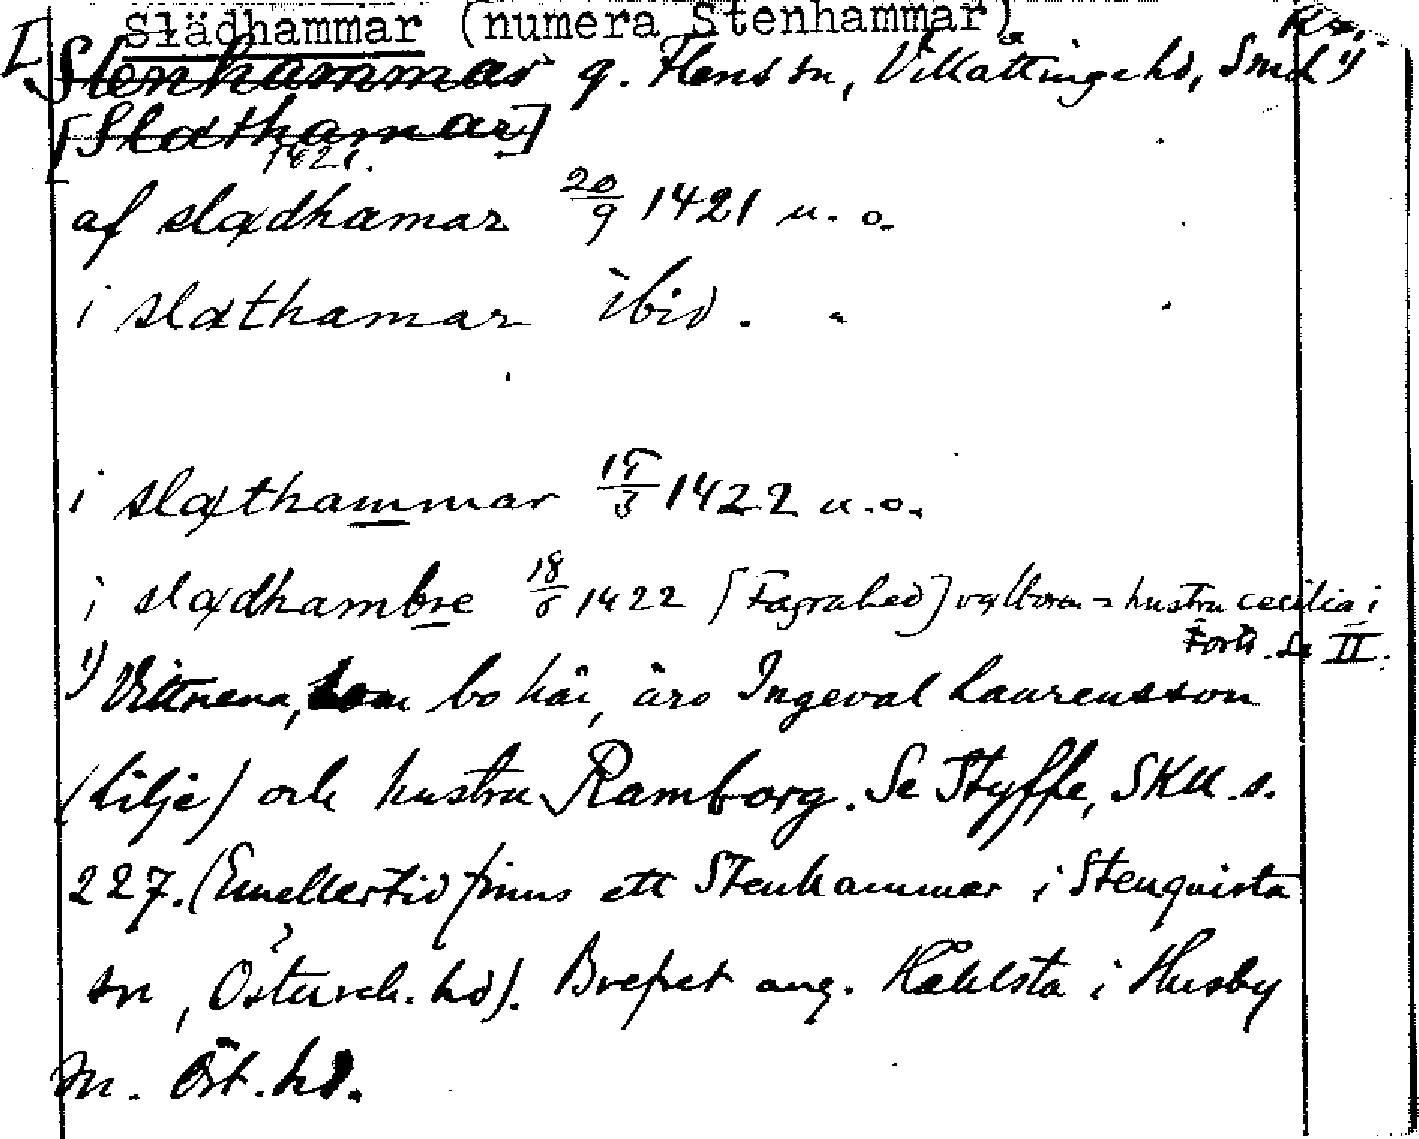 I Slädhammar (numera Stenhammar)
Stenhammar g. Flens sn, Villåttinge hd, Smld 1)
[Slæthamar]
1421.
af slædhamar 20/9 1421 u. o.
i slæthamar ibid.
i slæthammar 15/3 1422 u.o.
i slædhambre 18/8 1422 [Fagrahed] hustru cecilia i
Forts. Se II.
1) Vittnena, som bo här, äro Ingeval Laurensson
(Lilje) och hustru Ramborg. Se Styffe, SKU. s.
227. (Emellertid finns ett Stenhammar i Stenqvista
sn, Österreh. hd). Brefvet ang. Häklsta i Husby
sn. Öst. hd.